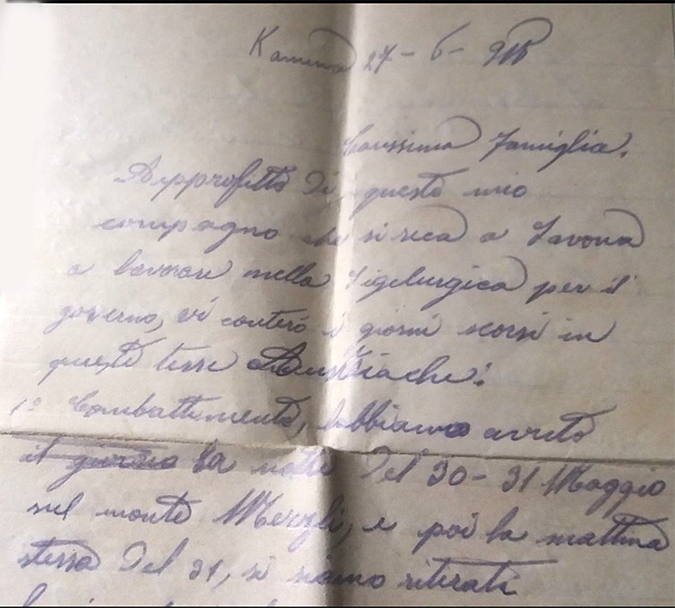 Kamina 27-6-915
Carissima Famiglia.
Approfitto di questo mio
compagno che si reca a Savona
a lavorare nella Sigelurgica per il
governo, vi conterò i giorni scorsi in
queste terre Austriache!
1º Combattimento, l'abbiamo avuto
il giorno la notte del 30-31 Maggio
sul monte Merzli, e poi la mattina
stessa del 31, si siamo ritirati